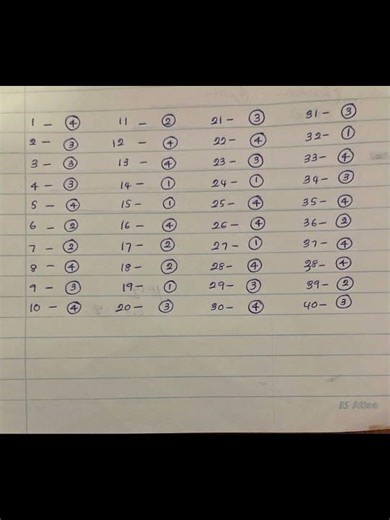 1 - ④ 11 - ② 21 - ③ 31 - ③
2 - ③ 12 - ④ 22 - ④ 32 - ①
3 - ③ 13 - ④ 23 - ③ 33 - ④
4 - ③ 14 - ① 24 - ① 34 - ③
5 - ④ 15 - ① 25 - ④ 35 - ④
6 - ② 16 - ④ 26 - ④ 36 - ②
7 - ② 17 - ② 27 - ① 37 - ④
8 - ④ 18 - ② 28 - ④ 38 - ④
9 - ③ 19 - ① 29 - ③ 39 - ②
10 - ④ 20 - ③ 30 - ④ 40 - ③